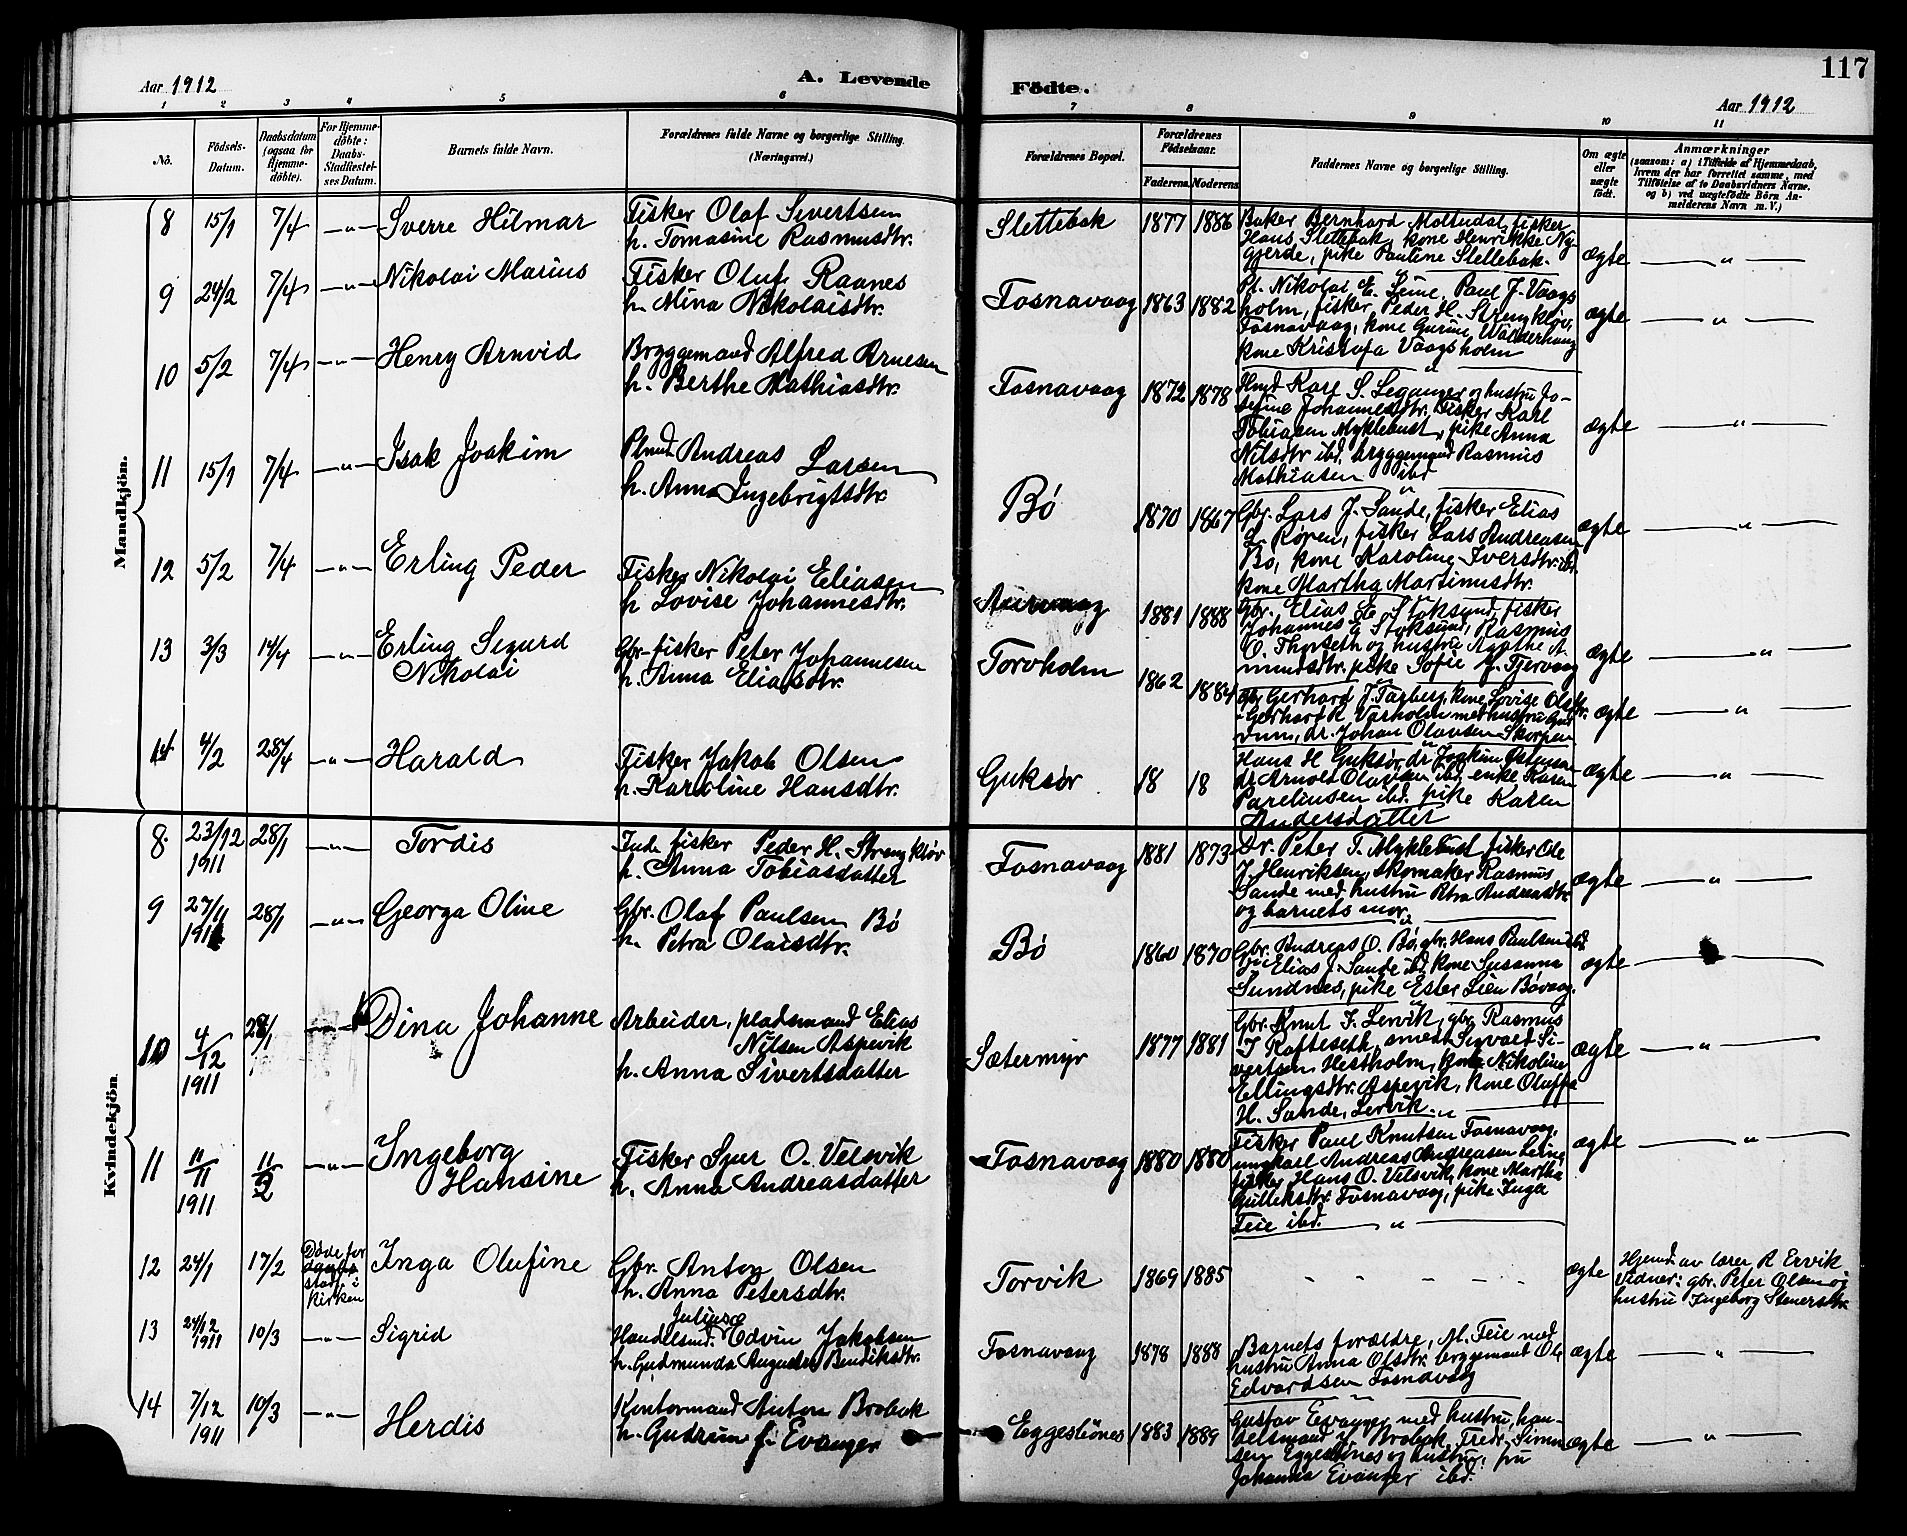 117
Aar 1912
A. Levende
Födte.
Aar 1912
1 2 3 4 5 6 7 8 9 10 11
No.
Födsels-
Datum.
Daabsdatum
(ogsaa for
Hjemme-
döbte).
For Hjemme-
döbte:
Daabs-
Stadfæstel-
ses Datum.
Barnets fulde Navn.
Forældrenes fulde Navne og borgerlige Stilling.
(Næringsvei.)
Forældrenes Bopæl.
Forældrenes
Födselsaar.
Faderens. Moderens.
Faddernes Navne og borgerlige Stilling.
Om ægte
eller
uægte
födt.
Anmærkninger
(saasom: a) i Tilfælde af Hjemmedaab,
hvem der har forrettet samme, med
Tilföielse af to Daabsvidners Navne,
og b) ved uægtefödte Börn An-
melderens Navn m. V.)
Mandkjön.
8 15/1 7/4 —"— Sverre Hilmar
Fisker Olaf Sivertsen
h. Tomasine Rasmusdtr.
Slettebak 1877 1886
Baker Bernhard Moltudal, fisker
Hans Slettebak, kone Henrikke Ny-
gjerde, pike Pauline Slettebak.
ægte —"—
9 24/2 7/4 —"— Nikolai Marius
Fisker Oluf Raanes
h. Mina Nikolaisdtr.
Fosnavaag 1863 1882
Pl. Nikolai E. Leine, Paul J. Vaags
holm, fisker Peder H. Strengkløv,
Fosnavaag, kone Gurine Walderhaug
kone Kristofa Vaagsholm
ægte —"—
10 5/2 7/4 —"— Henry Arnvid
Bryggemand Alfred Arnesen
h. Berthe Mathiasdtr.
Fosnavaag 1872 1878
Hmd. Karl S. Leganger og hustru Jo-
sefine Johannesdtr. Fisker Karl
Tobiasen Myklebust, pike Anna
Nilsdtr ibd. bryggemand Rasmus
Mathiasen ibd
ægte —"—
11 15/1 7/4 —"— Isak Joakim
Plmd. Andreas Larsen
h. Anna Ingebrigtsdtr.
Bø 1870 1867
Gbr. Lars J. Sande, fisker Elias
L. Røren, fisker Lars Andreasen
Bø, kone Karoline Iversdtr. ibd.
kone Martha Martinusdtr.
ægte —"—
12 5/2 7/4 —"— Erling Peder
Fisker Nikolai Eliasen
h Lovise Johannesdtr.
1881 1888
Gbr. Elias E. Stoksund, fisker
Johannes E Stoksund, Rasmus
O. Thorseth og hustru Agathe A-
mundsdtr, pike Sofie J. Tjervaag
ægte —"—
13 3/3 14/4 —"— Erling Sigurd
Nikolai
Gbr-fisker Peter Johannesen
h. Anna Eliasdtr.
Torvholm 1862 1884
Gbr Gerhard J. Tarberg, kone Lovise Olsdtr.
Gerhard R. Varholm med hustru Gud
runn, dr. Johan Olavsen Skorpen
ægte —"—
14 4/2 28/4 —"— Harald
Fisker Jakob Olsen
h. Karoline Hansdtr.
Guksør 18 18
Hans H Guksør, dr Joakim Ostensen
dr. Arnold Olavsen ibd, enke Karen
Parelinsen ibd. pike Karen
Andersdatter
ægte —"—
Kvindekjön
8. 23/12
1911 28/1 —"— Tordis
Inds. fisker Peder H. Strengkløv
h. Anna Tobiasdatter
Fosnavaag 1881 1873
Dr. Peter T. Myklebust fisker Ole
J. Henriksen, skomaker Rasmus
Sande med hustru Petra Andreasdtr
og barnets mor.
ægte —"—
9 27/11
1911 28/1 —"— Georga Oline
Gbr. Olaf Paulsen Bø
h. Petra Olaisdtr.
Bø 1860 1870
Gbr. Andreas O. Bø, gbr. Hans Paulsen ibd.
gbr Elias J. Sande ibd. kone Susanna
Sundnes, pike Ester Lien Bøvaag.
ægte
10 4/12
1911 28/1 —"— Dina Johanne
Arbeider, pladsmand Elias
Nilsen Aspevik
h. Anna Sivertsdatter
Sætermyr 1877 1881
Gbr. Knut J. Lervik, gbr. Rasmus
I Rafteseth, smed Sigvald Si-
vertsen Hestholm, kone Nikoline
Ellingsdtr. Aspevik, kone Oluffa
H. Sande, Lervik.
ægte —"—
11 11/11
1911 11/2 —"— Ingeborg
Hansine
Fisker Sjur O. Velsvik
h. Anna Andreasdatter
Fosnavaag 1880 1880
Fisker Paul Knutsen Fosnavaag,
ungkarl Andreas Andreasen Leine,
fisker Hans O. Velsvik, kone Martha
Gulleksdtr. Fosnavaag, pike Inga
Teie ibd.
ægte —"—
12 24/1 17/2 Døde før
daabs
stadf. i
kirken
Inga Olufine
Gbr. Anton Olsen
h. Anna Petersdtr.
Torvik 1869 1885
ægte
Hjemd. av lærer R Ervik
Vidner: gbr. Peter Olsen og
hustru Ingeborg Steinersdtr.
13 24/12
1911 10/3 —"— Sigrid
Julius
Handlesmd. Edvin Jakobsen
h. Gudmunda Augusta Bendiksdtr.
Fosnavaag 1878 1888
Barnets forældre, M. Teie med
hustru Anna Olsdtr. bryggemand Ole
Edvardsen Fosnavaag
ægte —"—
14 7/12
1911 10/3 —"— Herdis
Kontormand Anton Brobak
h. Gudrun f. Evanger
Eggesbönes 1883 1889
Gustav Evanger med hustru, han-
delsmand J. Brobak, Fredr. Simon
sen Eggesbönes og hustru, frn
Johanna Evanger ibd.
ægte —"—